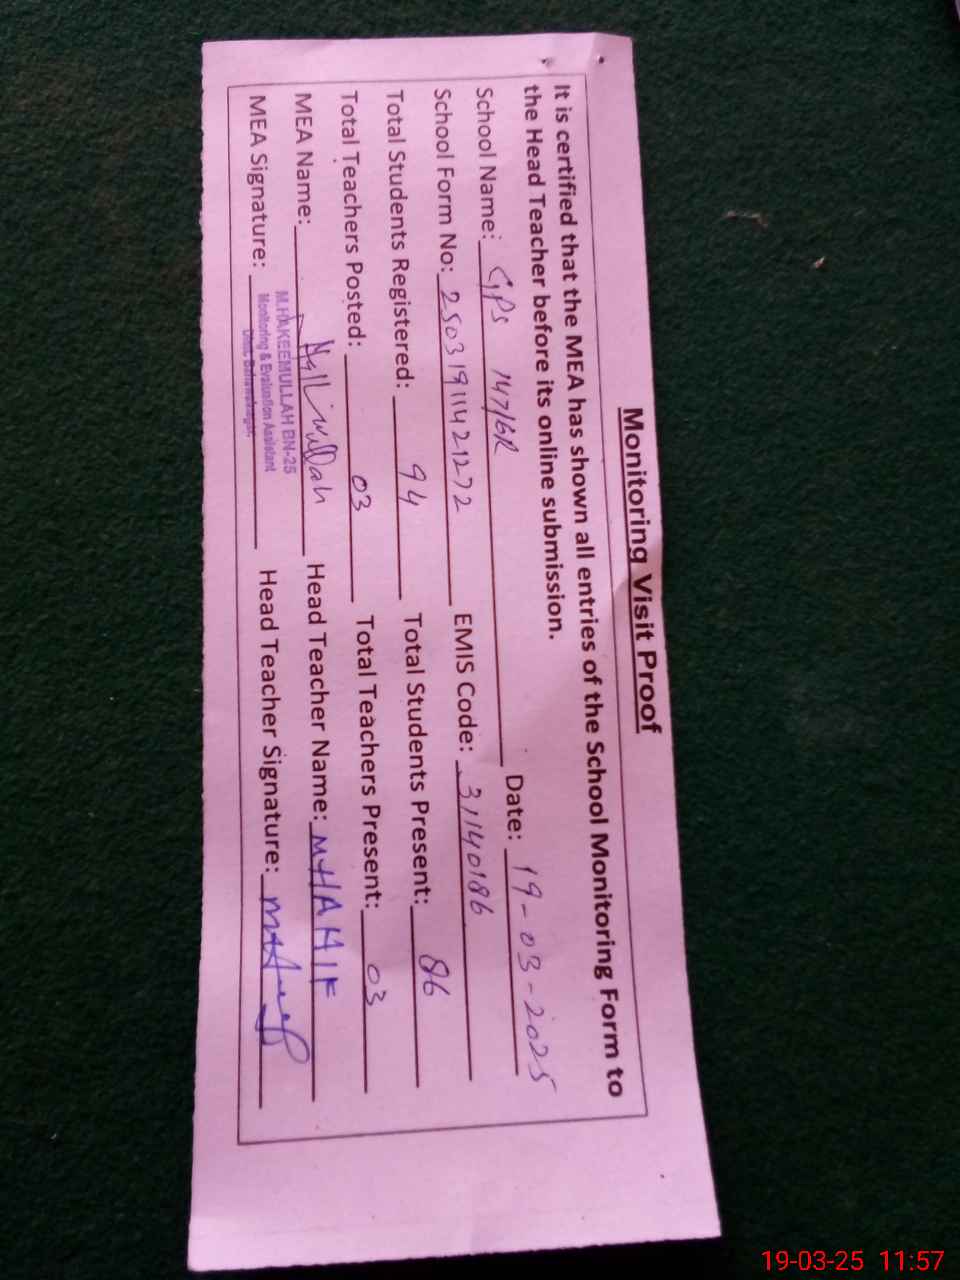 Monitoring Visit Proof
It is certified that the MEA has shown all entries of the School Monitoring Form to
the Head Teacher before its online submission.
School Name: GPS 147/6R Date: 19-03-2025
School Form No: 25031911421272 EMIS Code: 31140186
Total Students Registered: 94 Total Students Present: 86
Total Teachers Posted: 03 Total Teachers Present: 03
MEA Name: Head Teacher Name: M HANIF
M.HAKEEMULLAH BN-25
MEA Signature: Monitoring & Evaluation Assistant Head Teacher Signature:
Distt. Bahawalnagar.
19-03-25 11:57